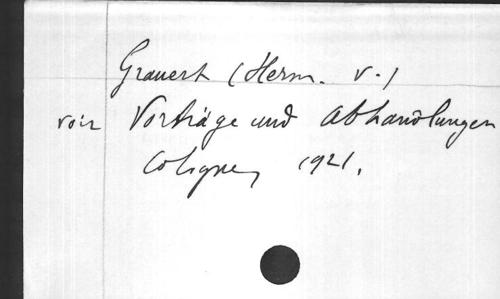 Grauert (Herm. v.)
voir Vorträge und Abhandlungen
Cologne, 1921.